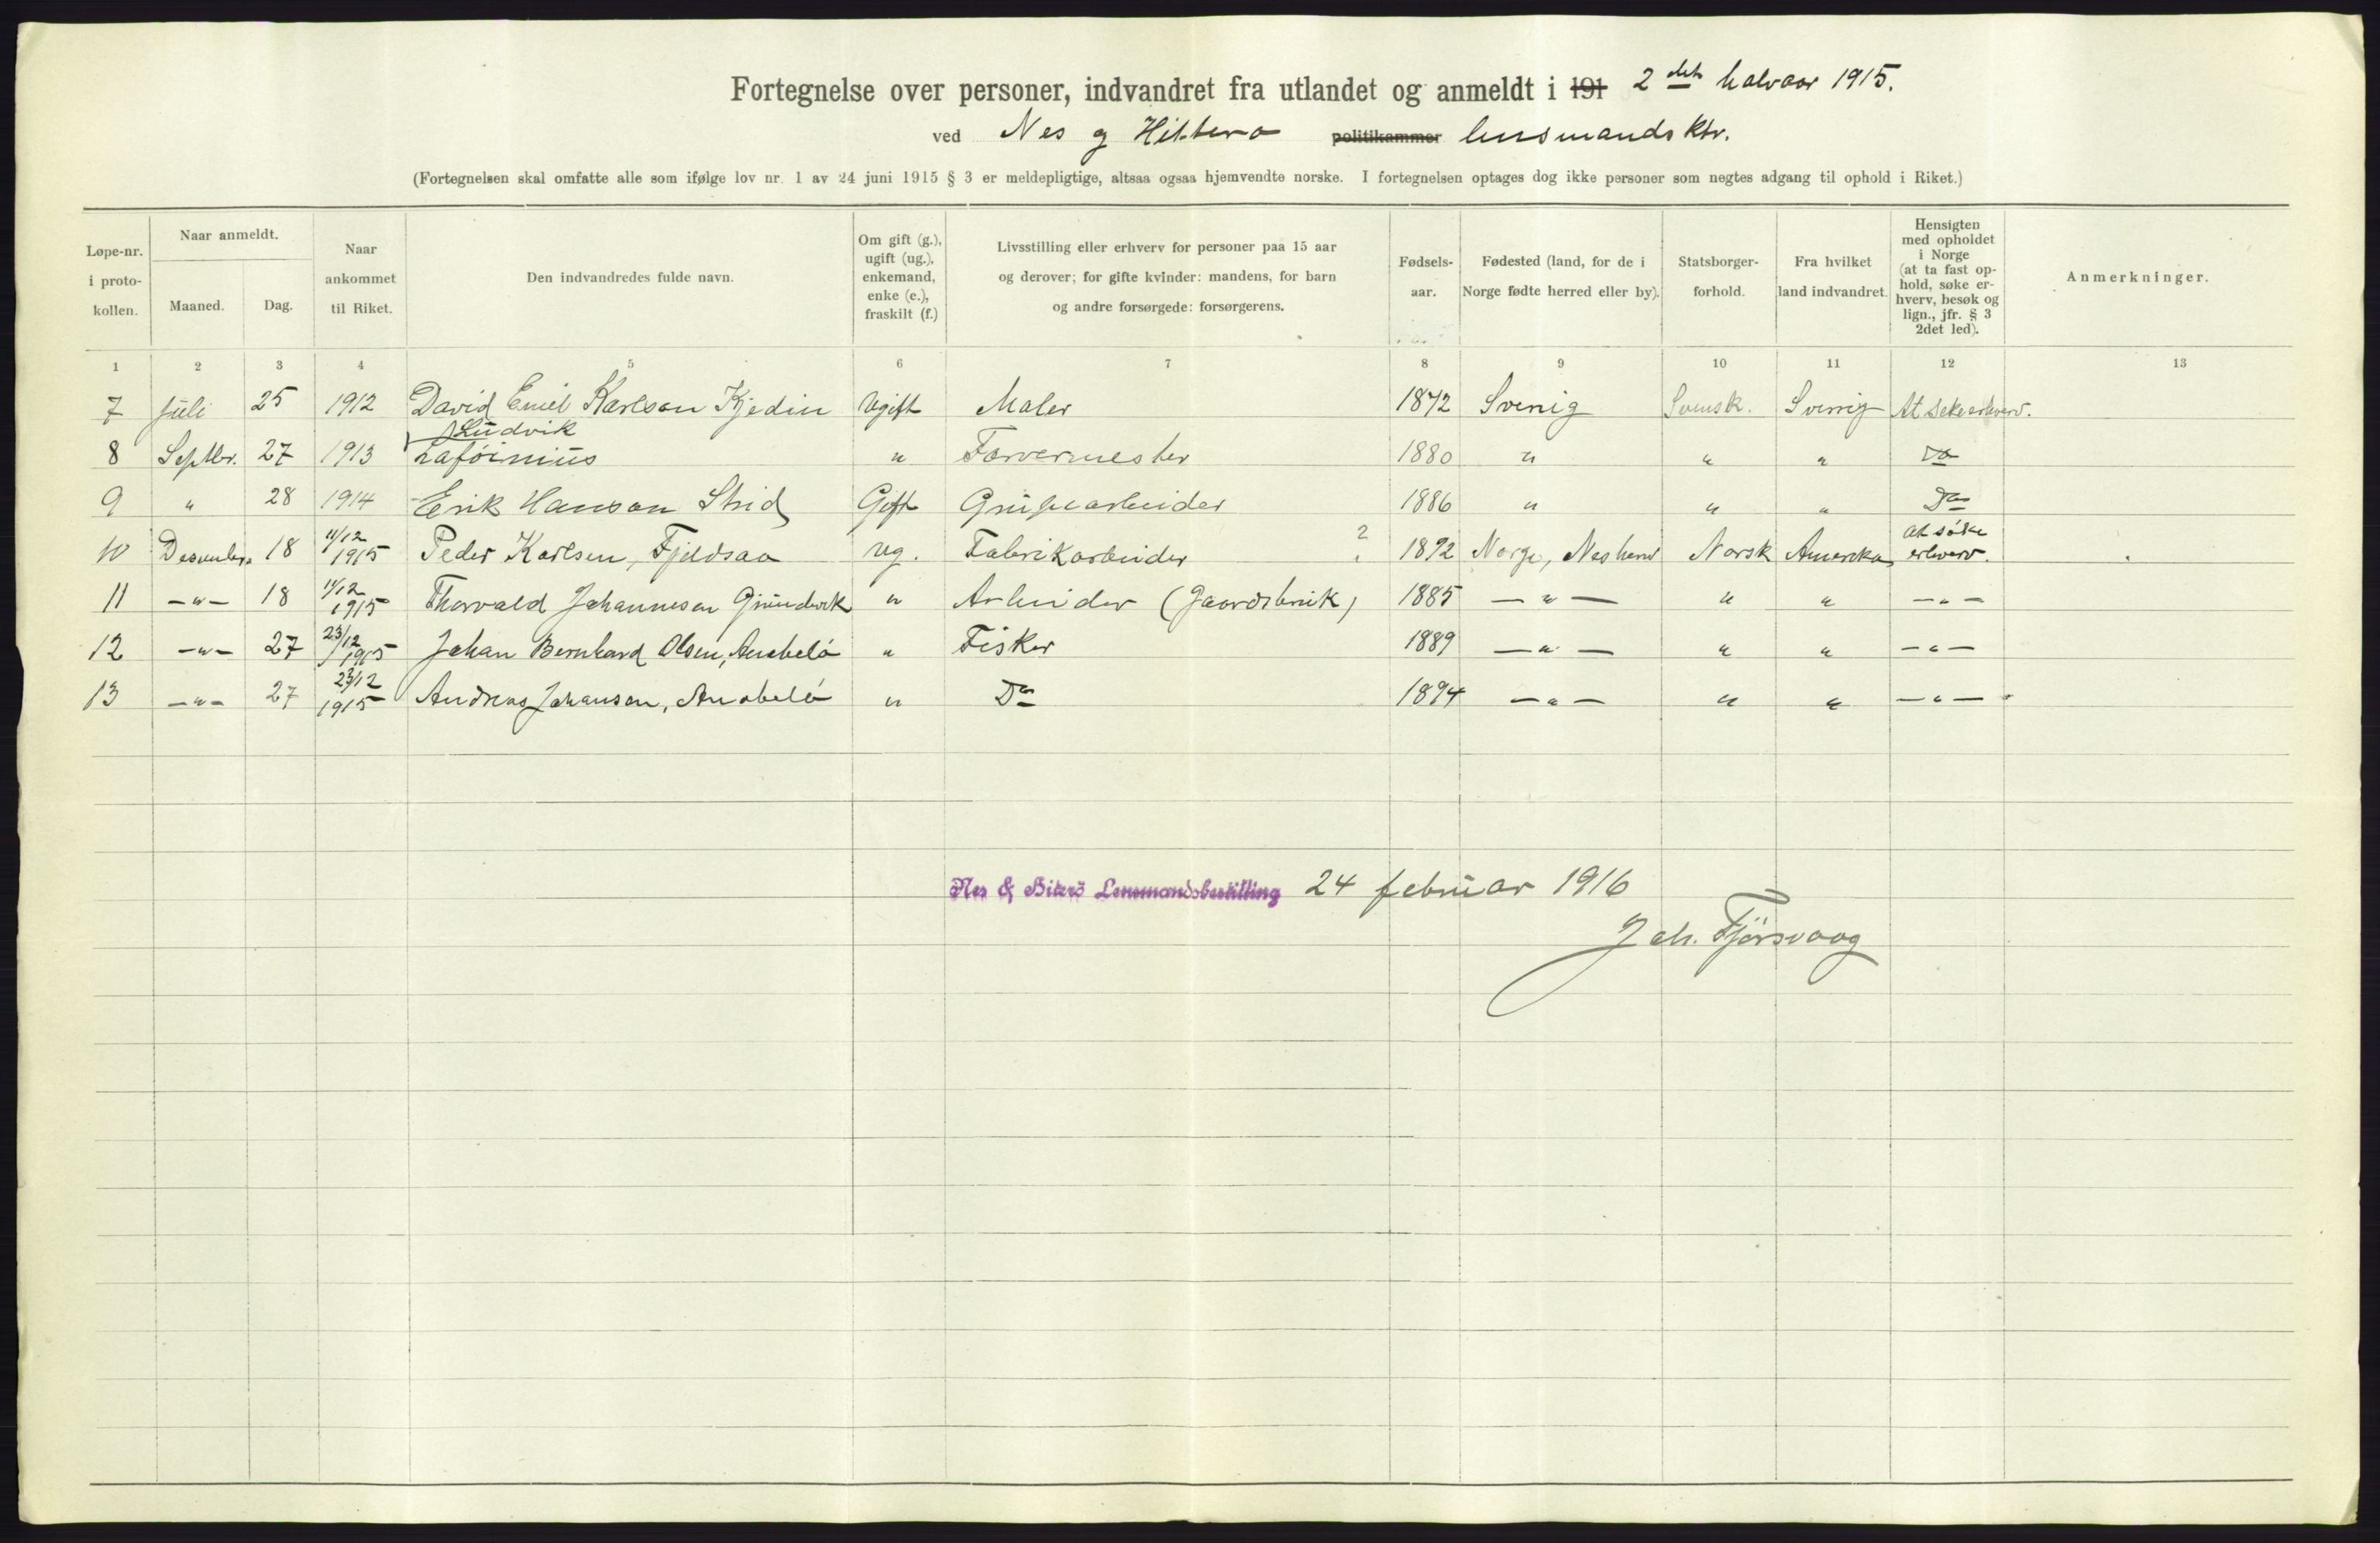 Fortegnelse over personer, indvandret fra utlandet og anmeldt i 191 2 det halvaar 1915.
ved Nes og Hitterø politikammer lensmandsktr.
(Fortegnelsen skal omfatte alle som ifølge lov nr. 1 av 24 juni 1915 § 3 er meldepligtige, altsaa ogsaa hjemvendte norske. I fortegnelsen optages dog ikke personer som negtes adgang til ophold i Riket.)
Løpe-nr. i proto-kollen. Naar anmeldt. Maaned. Dag. Naar ankommet til Riket. Den indvandredes fulde navn. Om gift (g.), ugift (ug.), enkemand, enke (e.), fraskilt (f.) Livsstilling eller erhverv for personer paa 15 aar og derover; for gifte kvinder: mandens, for barn og andre forsørgede: forsørgerens. Fødsels-aar. Fødested (land, for de i Norge fødte herred eller by). Statsborger-forhold. Fra hvilket land indvandret. Hensigten med opholdet i Norge (at ta fast op-hold, søke er-hverv, besøk og lign., jfr. § 3 2det led). Anmerkninger.
1 2 3 4 5 6 7 8 9 10 11 12 13
7 Juli 25 1912 David Emil Karlson Kjedin Ugift Maler 1872 Sverrig Svensk. Sverrig At søke erhverv.
Ludvik
8 Septbr. 27 1913 " Farvermester 1880 " " " Do
9 " 28 1914 Erik Hanson Strid Gift Grubearbeider 1886 " " " Do
10 Desember 18 11/12 1915 Peder Karlsen, Fjeldsaa ug. Fabrikarbeider ? 1892 Norge, Nes herred Norsk Amerika at søke erhverv.
11 -"- 18 11/12 1915 Thorvald Johannesen Grundvik " Arbeider (Gaardsbruk) 1885 -"- " " -"-
12 -"- 27 23/12 1915 Johan Bernhard Olsen, Anabelø " Fisker 1889 -"- " " -"-
13 -"- 27 23/12 1915 Andreas Johansen, Anabelø " Do 1894 -"- " " -"-
Nes & Hiterö Lensmandsbestilling 24 februar 1916
Joh. Fjørsvaag